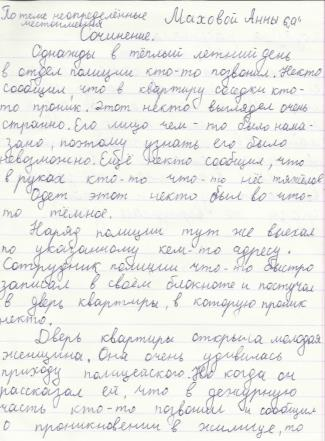 По теме неопределённые Маховой Анны 6"а"
местоимения
Сочинение.
Однажды в тёплый летний день
в отдел полиции кто-то позвонил. Некто
сообщил что в квартиру соседки кто-
то проник. Этот некто выглядел очень
странно. Его лицо чем-то было нама-
зано, поэтому узнать его было
невозможно. Ещё некто сообщил, что
в руках кто-то что-то нёс тяжёлое
Одет этот некто был во что-
то тёмное.
Наряд полиции тут же выехал
по указанному кем-то адресу.
Сотрудник полиции что-то быстро
записал в своём блокноте и постучал
в дверь квартиры, в которую проник
некто.
Дверь квартиры открыла молодая
женщина. Она очень удивилась
приходу полицейского. Но когда он
рассказал ей, что в дежурную
часть кто-то позвонил и сообщил
о проникновении в жилище, то